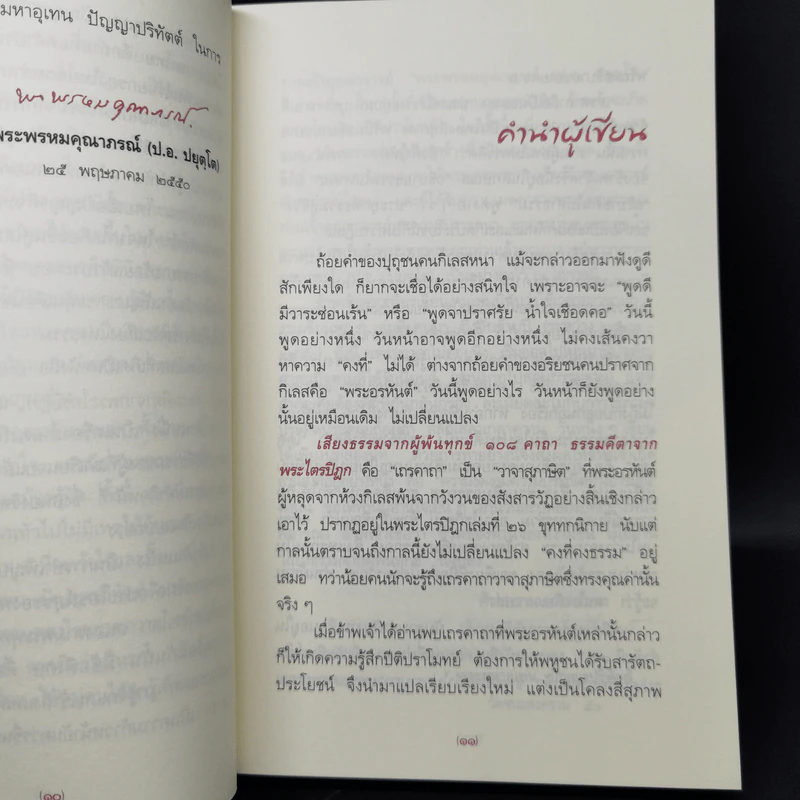 มหาอุเทน ปัญญาปริทัตต์ ในการ
พระพรหมคุณาภรณ์
พระพรหมคุณาภรณ์ (ป.อ. ปยุตฺโต)
๒๕ พฤษภาคม ๒๕๕๐
(๑๐)
คำนำผู้เขียน
ถ้อยคำของปุถุชนคนกิเลสหนา แม้จะกล่าวออกมาฟังดูดี
สักเพียงใด ก็ยากจะเชื่อได้อย่างสนิทใจ เพราะอาจจะ "พูดดี
มีวาระซ่อนเร้น" หรือ "พูดจาปราศรัย น้ำใจเชือดคอ" วันนี้
พูดอย่างหนึ่ง วันหน้าอาจพูดอีกอย่างหนึ่ง ไม่คงเส้นคงวา
หาความ "คงที่" ไม่ได้ ต่างจากถ้อยคำของอริยชนคนปราศจาก
กิเลสคือ "พระอรหันต์" วันนี้พูดอย่างไร วันหน้าก็ยังพูดอย่าง
นั้นอยู่เหมือนเดิม ไม่เปลี่ยนแปลง
เสียงธรรมจากผู้พ้นทุกข์ ๑๐๘ คาถา ธรรมคีตาจาก
พระไตรปิฎก คือ "เถรคาถา" เป็น "วาจาสุภาษิต" ที่พระอรหันต์
ผู้หลุดจากห้วงกิเลสพ้นจากวังวนของสังสารวัฏอย่างสิ้นเชิงกล่าว
เอาไว้ ปรากฏอยู่ในพระไตรปิฎกเล่มที่ ๒๖ ขุททกนิกาย นับแต่
กาลนั้นตราบจนถึงกาลนี้ยังไม่เปลี่ยนแปลง "คงที่คงธรรม" อยู่
เสมอ ทว่าน้อยคนนักจะรู้ถึงเถรคาถาวาจาสุภาษิตซึ่งทรงคุณค่านั้น
จริง ๆ
เมื่อข้าพเจ้าได้อ่านพบเถรคาถาที่พระอรหันต์เหล่านั้นกล่าว
ก็ให้เกิดความรู้สึกปีติปราโมทย์ ต้องการให้พหูชนได้รับสารัตถ-
ประโยชน์ จึงนำมาแปลเรียบเรียงใหม่ แต่งเป็นโคลงสี่สุภาพ
(๑๑)